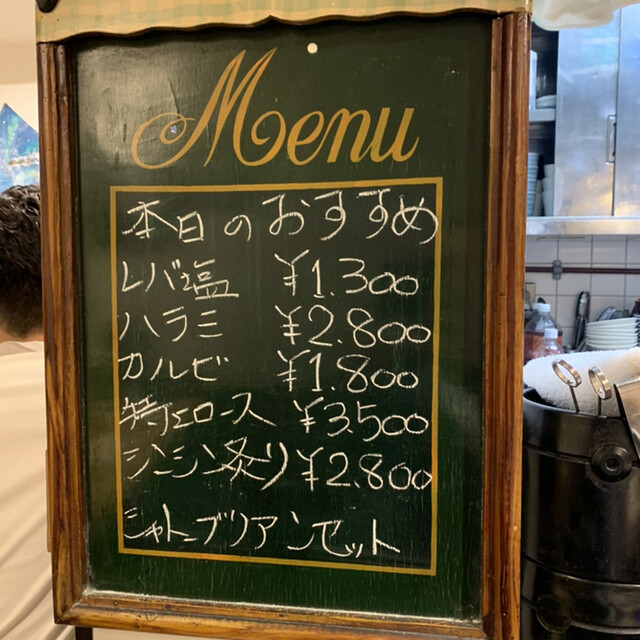 Menu
本日のおすすめ
レバ塩 ¥1.300
ハラミ ¥2.800
カルビ ¥1.800
特上ロース ¥3500
シンシン炙り ¥2.800
シャトーブリアンセット